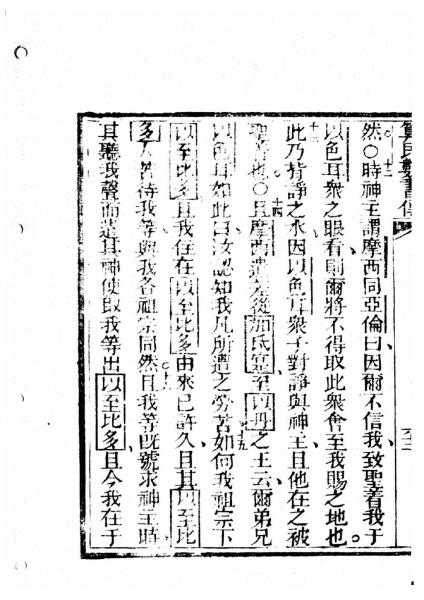 算民數書傳
然○時神主謂摩西同亞倫曰因爾不信我致聖着我于
十二
以色耳衆之眼看則爾將不得取此衆會至我賜之地也
十三
此乃背諍之水因以色耳衆子對諍與神主且他在之被
聖着也○且摩西遣差從加氏寔至以丹之王云爾弟兄
十四
以色耳如此曰汝認知我凡所遭之勞苦如何我祖宗下
十五
以至比多且我住在以至比多由來已許久且其以至比
多人苦待我等與我各祖宗同然且我等既號求神主時
十六
其聽我聲而遣其神使取我等出以至比多且今我在于